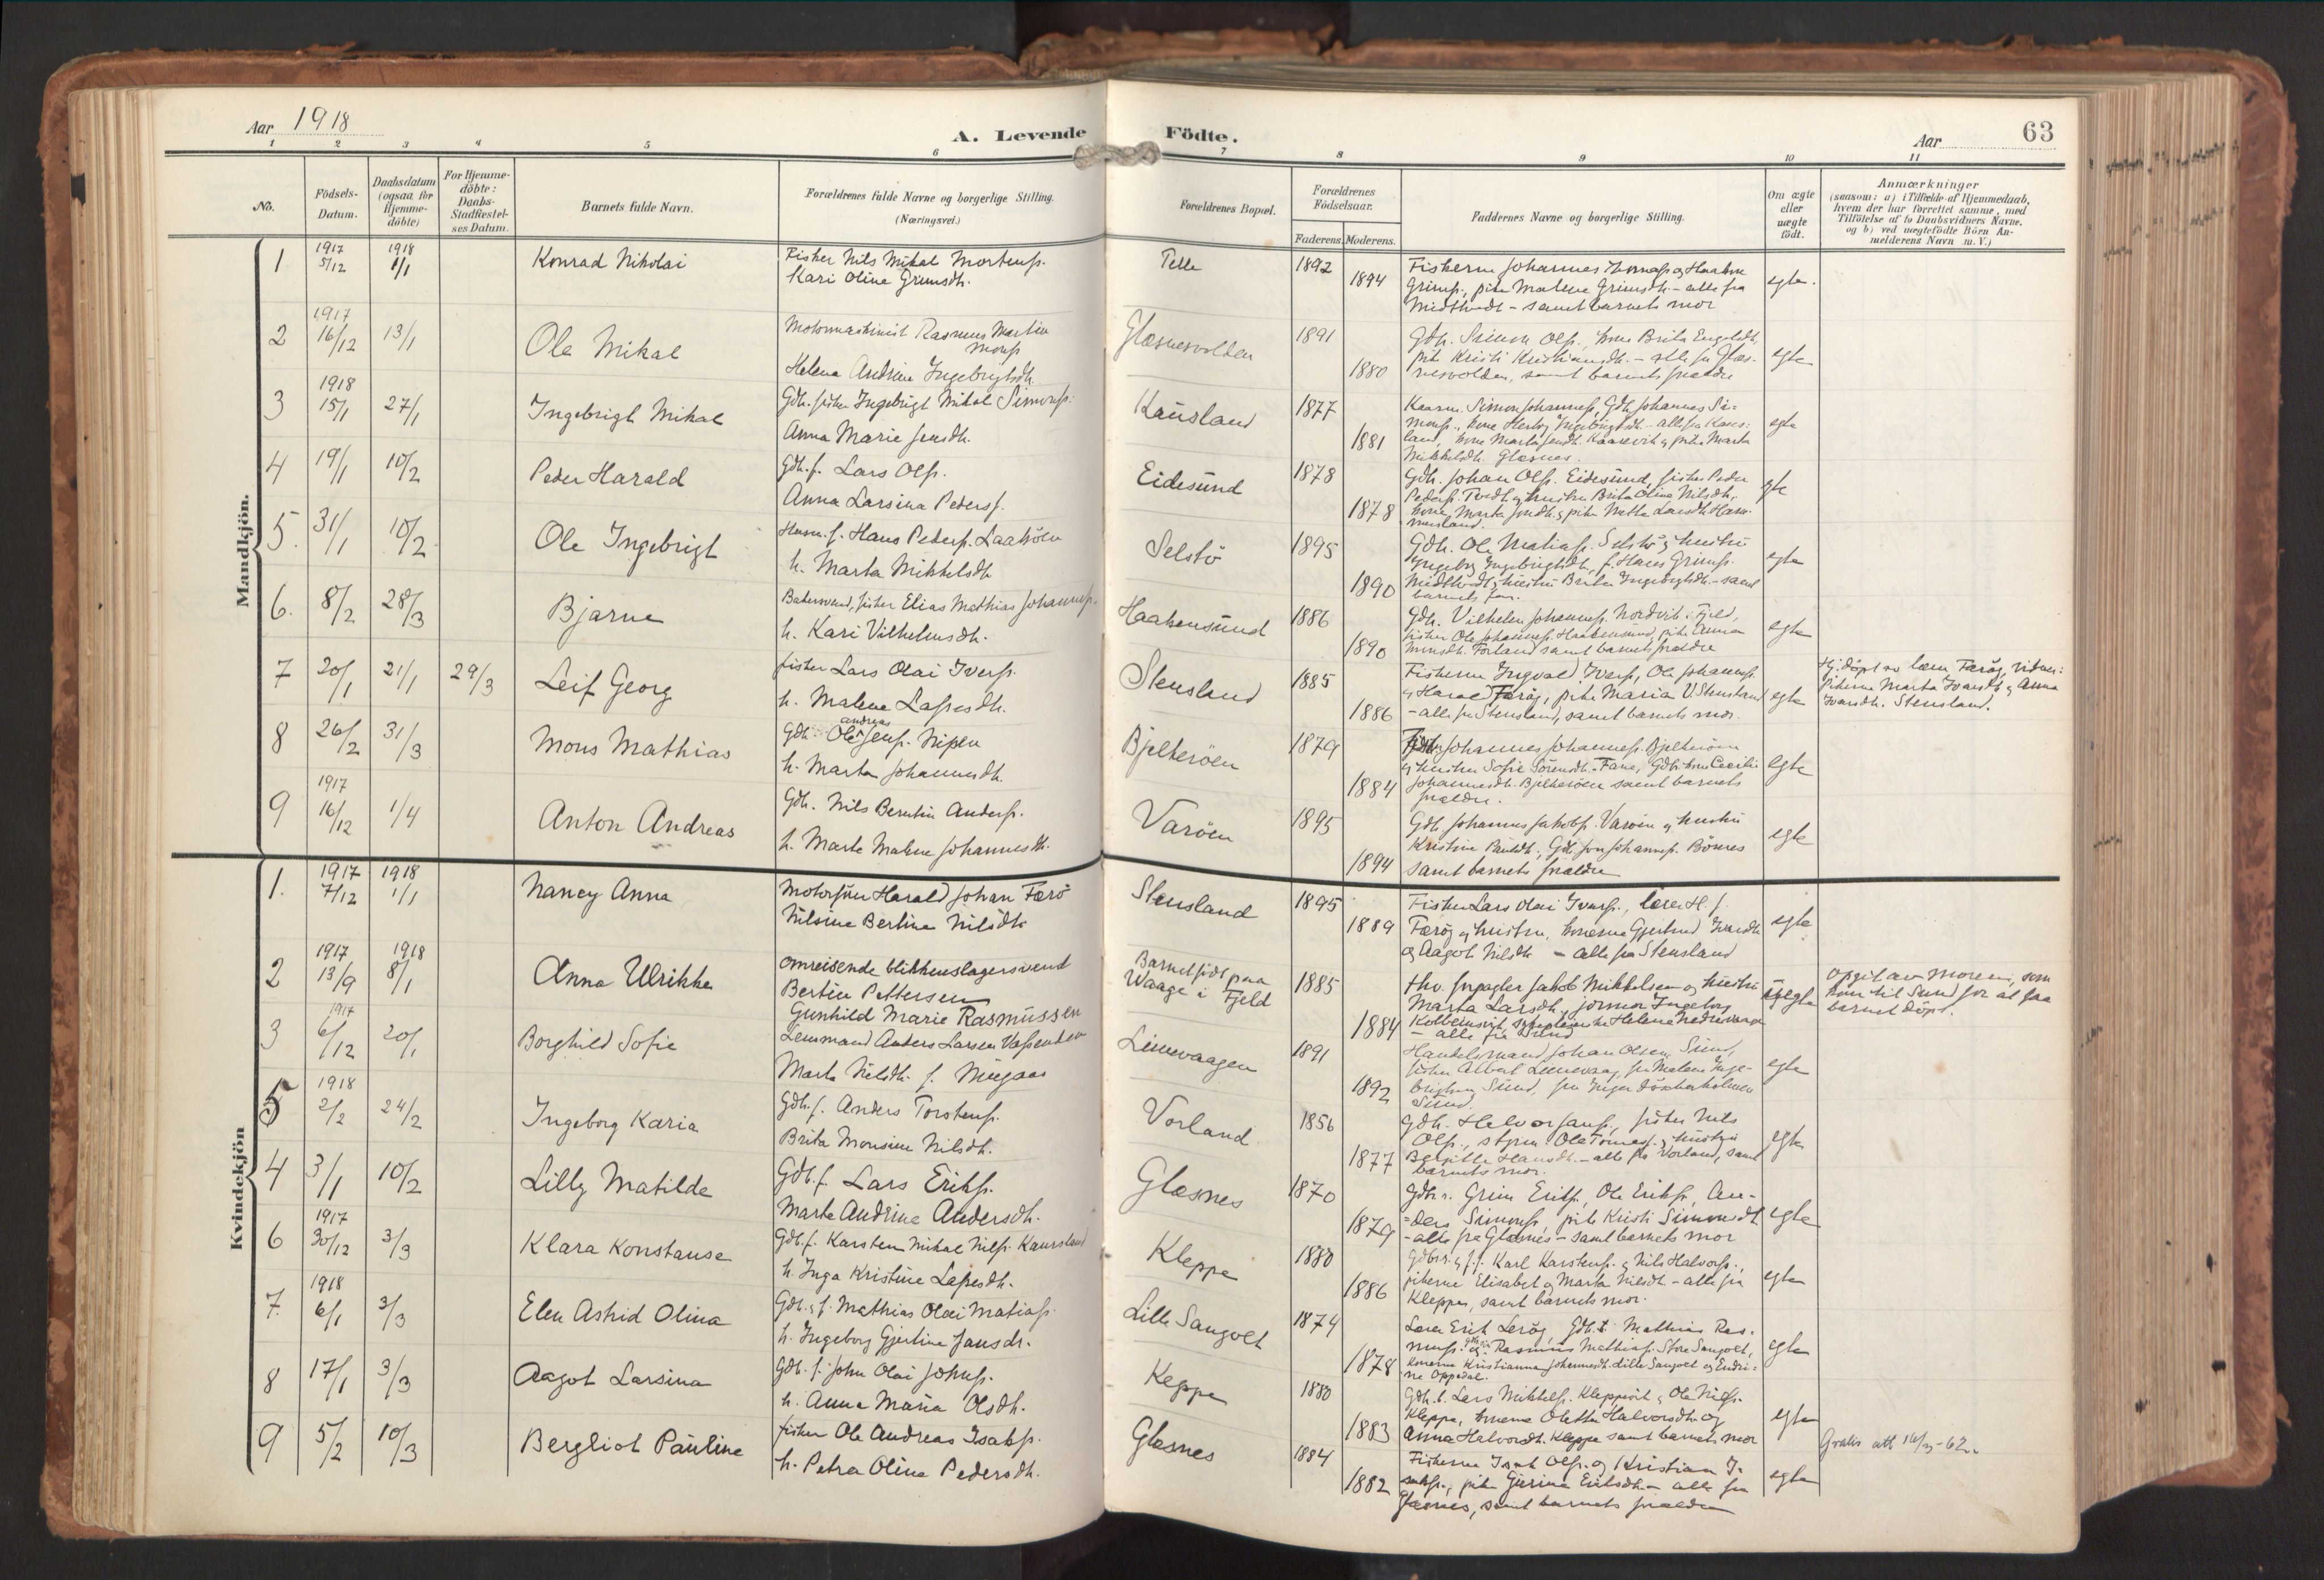 Aar 1918
A. Levende Födte.
Aar
63
1 2 3 4 5 6 7 8 9 10 11
No.
Födsels-Datum.
Daabsdatum (ogsaa for Hjemme-döbte)
For Hjemme-döbte: Daabs-Stadfæstel-ses Datum.
Barnets fulde Navn.
Forældrenes fulde Navne og borgerlige Stilling. (Næringsvei.)
Forældrenes Bopæl.
Forældrenes Födselsaar.
Faderens. Moderens.
Faddernes Navne og borgerlige Stilling.
Om ægte eller uægte födt.
Anmærkninger
(saasom: a) i Tilfælde af Hjemmedaab, hvem der har forrettet samme, med Tilföielse af to Daabsvidners Navne. og b) ved uægtefödte Börn Anmelderens Navn m. V.)
Mandkjön.
1 1917 5/12 1918 1/1 Konrad Nikolai
Fisher Nils Mikal Mortensp.
Kari Oline Grimsdh.
Telle 1892 1894
Grimsp., pike Malene Grimsdh. – alle fra
– samt barnets mor
egte.
2 1917 16/12 13/1 Ole Mikal
Motormaskinist Rasmus Martin Monsp
Helena Andrine Ingebrigtsdh.
Glæsnesvolden 1891 1880
Gdh. Simon Olsp., kone Brita
pike Kristi Kristiansdh. – alle fra Glæs-
nesvolden, samt barnets forældre
egte
3 1918 15/1 27/1 Ingebrigt Mikal
Gdh. fisher Ingebrigt Mikal Simonsp.
Anna Marie Jensdh.
Kausland 1877 1881
Simon Johannesp, Gdh Johannes Si-
monsp., kone Ingebrigtsdh. – alle fra Kaus-
land, kone Marta Jensdh. og pike Marta
Mikkelsdh. Glæsnes.
egte
4 19/1 10/2 Peder Harald
Gdh. f. Lars Olsp.
Anna Larsina Pedersp.
Eidesund 1878 1878
Gdh. Johan Olsp. Eidesund, fisher Peder
Pedersp. og hustru Brita Oline Nilsdh,
kone Marta
egte
5. 31/1 10/2 Ole Ingebrigt
Husm. f. Hans Pedersp. Laaköen
h. Marta Mikkelsdh
Selstö 1895 1890
Gdh. Ole Matiasp. Selstö og hustru
Ingeborg Ingebrigtsdh, f. Hans Grimsp.
og hustru Brita Ingebrigtsdh – samt
barnets far.
egte
6. 8/2 28/3 Bjarne
fisher Elias Mathias Johannesp.
h. Kari Vilhelmsdh.
Haakensund 1886 1890
Gdh. Vilhelm Johannesp. Nordvik i Fjeld,
fisher Ole Johannesp. Haakensund, pike Anna
Forland samt barnets forældre
egte
7 20/1 21/1 29/3 Leif Georg
fisher Lars Olai Iversp.
h. Malene Lassesdh.
Stensland 1885 1886
Fiskerne Ingvald Iversp, Ole Johannesp.
og Harald Færöy, pike Maria Stensland
– alle fra Stensland, samt barnets mor.
egte
Hj. döpt av lærer Færöy, vidner:
pikerne Marta Ivarsdh. og Anna
Ivarsdh. Stensland.
8 26/2 31/3 Mons Mathias
Gdh. Ole Andreas Jensp. Nipen
h. Marta Johannesdh.
Bjelkeröen 1879 1884
Johannes Johannesp. Bjelkeröen
og hustru Sofie Sörensdh. Fane, Gdh. kone Cecilie
Johannesdh. Bjelkeröen samt barnets
forældre.
egte
9 1917 16/12 1/4 Anton Andreas
Gdh. Nils Berntin Andersp.
h. Marte Malene Johannesdh.
Varöen 1895 1894
Gdh Johannes Jakobsp. Varöen og hustru
Kristine Gdh. Jon Johannesp. Börnes
samt barnets forældre
egte
Kvindekjön
1. 1917 7/12 1918 1/1 Nancy Anna
Motorförer Harald Johan Færö
Nilsine Bertine Nilsdh
Stensland 1895 1889
Fisker Lars Olai Ivarsp., lærer H. J.
Færöy og hustru, konerne Gjertrud Ivarsdh
og Aagot Nilsdh – alle fra Stensland
egte
2 1917 13/9 1918 8/1 Anna Ulrikke
Omreisende blikkenslagersvend
Bertin Pettersen
Gunhild Marie Rasmussen
Barnet födt paa
Waage i Fjeld
1885 1884
fhv. Jakob Mikkelsen og hustru
Marta Larsdh, jormor Ingeborg
Kolbeinsvik, Helena
– alle fra Sund
uegte
Opgit av moren, som
kom til Sund for at faa
barnet döpt.
3 1917 6/12 20/1 Borghild Sofie
Lensmand Anders Larsen Vassenden
Marta Nilsdh. f. Nügaar
Linnevaagen 1891 1892
Handelsmand Johan Olsen, Sund,
fisher Albert fru Malene Inge-
brigtsen Sund, frk Inger
Sund.
egte
5 1918 2/2 24/2 Ingeborg Karia
Gdh. f. Anders Torstensp.
Brita Monsine Nilsdh.
Vorland 1856 1877
Gdh. Helvor Jansp., fisher Nils
Olsp., styrm. Ole og hustru
Hansdh. – alle fra Vorland, samt
barnets mor.
egte
4 3/1 10/2 Lilly Matilde
Gdh. f. Lars Eriksp.
Marta Andrine Andersdh.
Glæsnes 1870 1879
Gdbr. Grim Eriksp, Ole Eriksp, An-
ders Simonsp, pike Kristi Simonsdh
– alle fra Glæsnes – samt barnets mor
egte
6 1917 30/12 3/3 Klara Konstanse
Gdb. f. Karsten Mikal Nilsp. Kausland
h. Inga Kristine Lassesdh.
Kleppe 1880 1886
Gdbr. og f.: Karl Karstensp. og Nils Halvorsp.,
pikerne Elisabet og Marta Nilsdh – alle fra
Kleppe, samt barnets mor.
egte
7. 1918 6/1 3/3 Elen Astrid Olina
Gdh. f. Mathias Olai Matiasp.
h. Ingeborg Gjertine Jansdr.
Lille Sangolt 1874 1878
Lærer Erik Leröy, Gdh. Mathias Ras-
musp. og Rasmus Mathiasp. Store Sangolt,
konerne Kristianna Johannesdh. Lille Sangolt og Endri-
ne Oppedal.
egte
8 17/1 3/3 Aagot Larsina
Gdb. f. John Olai Johnsp.
h. Anna Maria Olsdh.
Kleppe 1880 1883
Gdh. b. Lars Mikkelsp. Kleppevik, Ole Nilsp.
Kleppe, konerne Oletta Halvorsdh. og
Anna Halvorsdh. Kleppe samt barnets mor
egte
9 5/2 10/3 Bergliot Pauline
fisher Ole Andreas Isaksp.
h. Petra Oline Pedersdh.
Glæsnes 1884 1882
Fiskerne Isak Olsp. og Kristian I-
saksp., pike Gurina – alle fra
Glæsnes, samt barnets forældre
egte
Gratis att